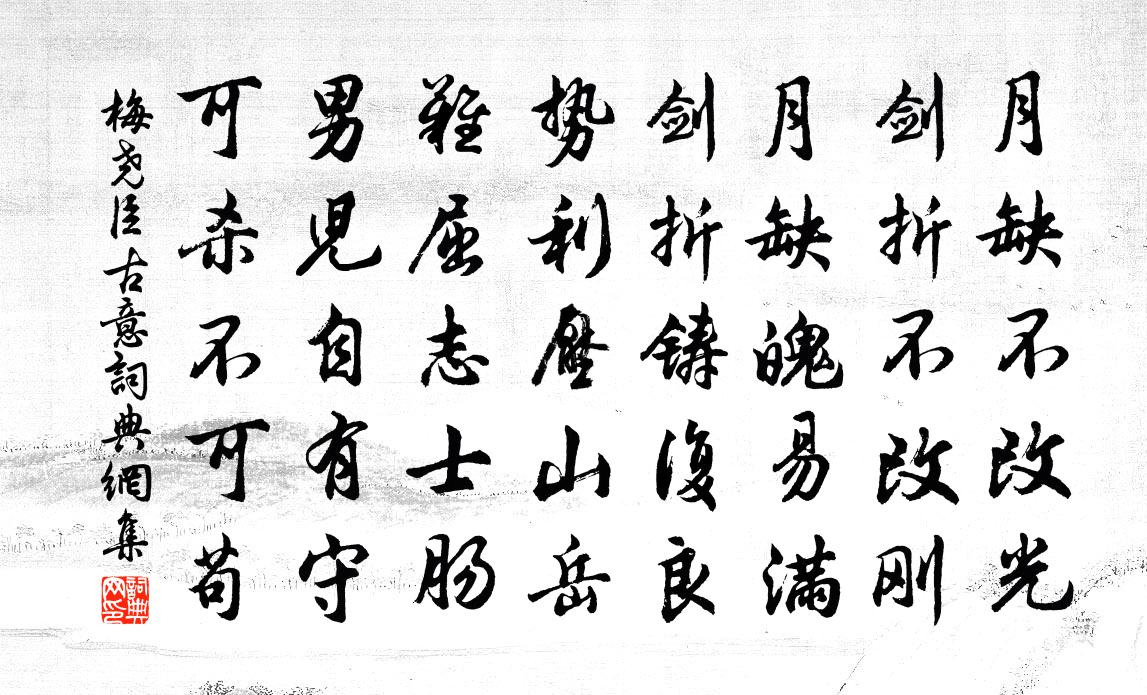 月缺不改光
剑折不改刚
月缺魄易满
剑折铸復良
势利壓山岳
难屈志士肠
男児自有守
可杀不可苟
梅尧臣古意詞典網集
詞典
网印